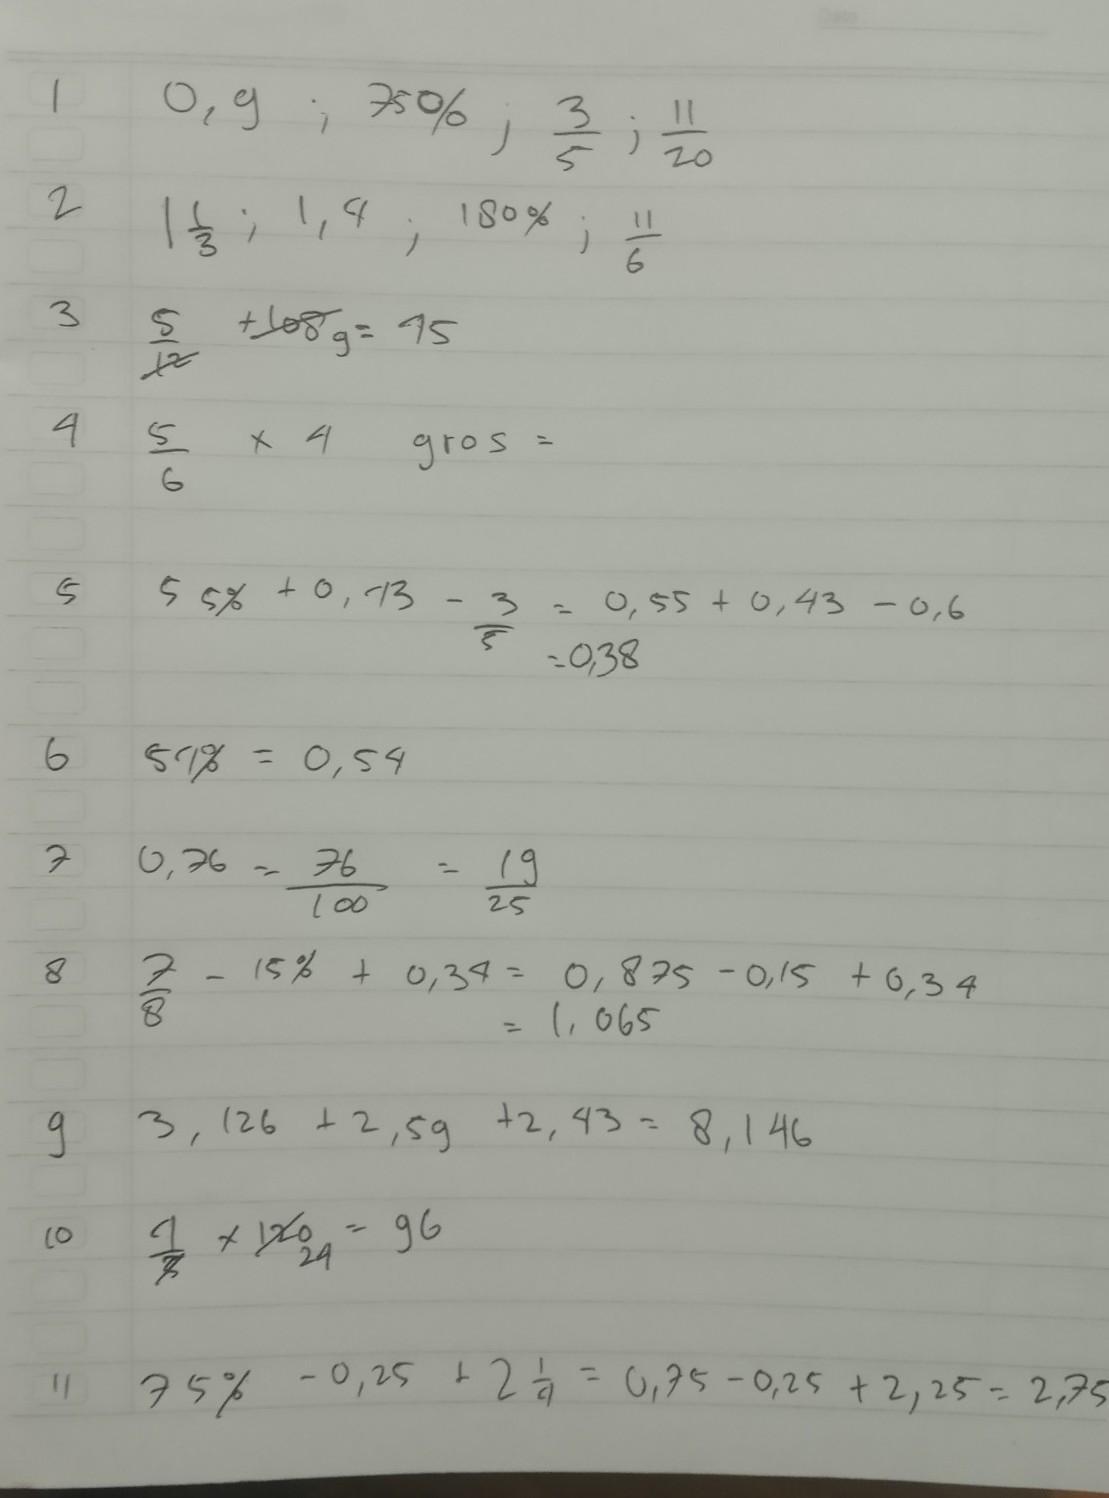 Date
1 0,9 ; 75% ; 3/5 ; 11/20
2 1 1/3 ; 1,4 ; 180% ; 11/6
3 5/12 + 108 9 = 45
4 5/6 x 4 gros =
5 55% + 0,43 - 3/5 = 0,55 + 0,43 - 0,6
= 0,38
6 54% = 0,54
7 0,76 = 76/100 = 19/25
8 7/8 - 15% + 0,34 = 0,875 - 0,15 + 0,34
= 1,065
9 3,126 + 2,59 + 2,43 = 8,146
10 4/5 x 120 24 = 96
11 75% - 0,25 + 2 1/4 = 0,75 - 0,25 + 2,25 = 2,75